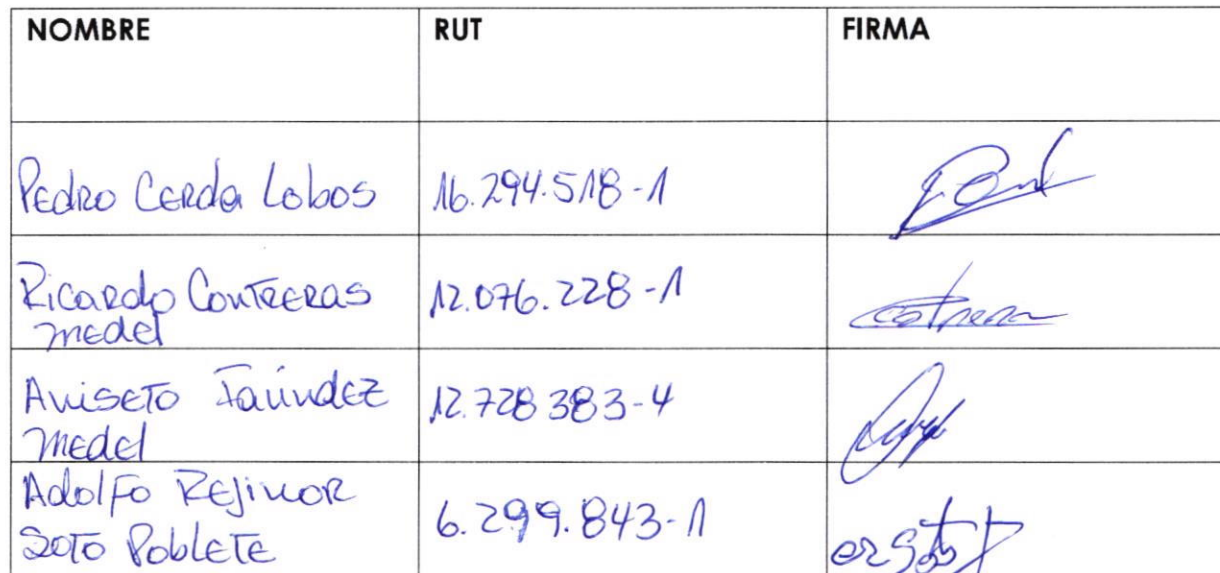 NOMBRE RUT FIRMA
Pedro Cerda Lobos 16.294.518-1
Ricardo Contreras 12.076.228-1
Medel
Aniseto Faúndez 12.728383-4
Medel
Adolfo Rejinor
Soto Poblete 6.299.843-1